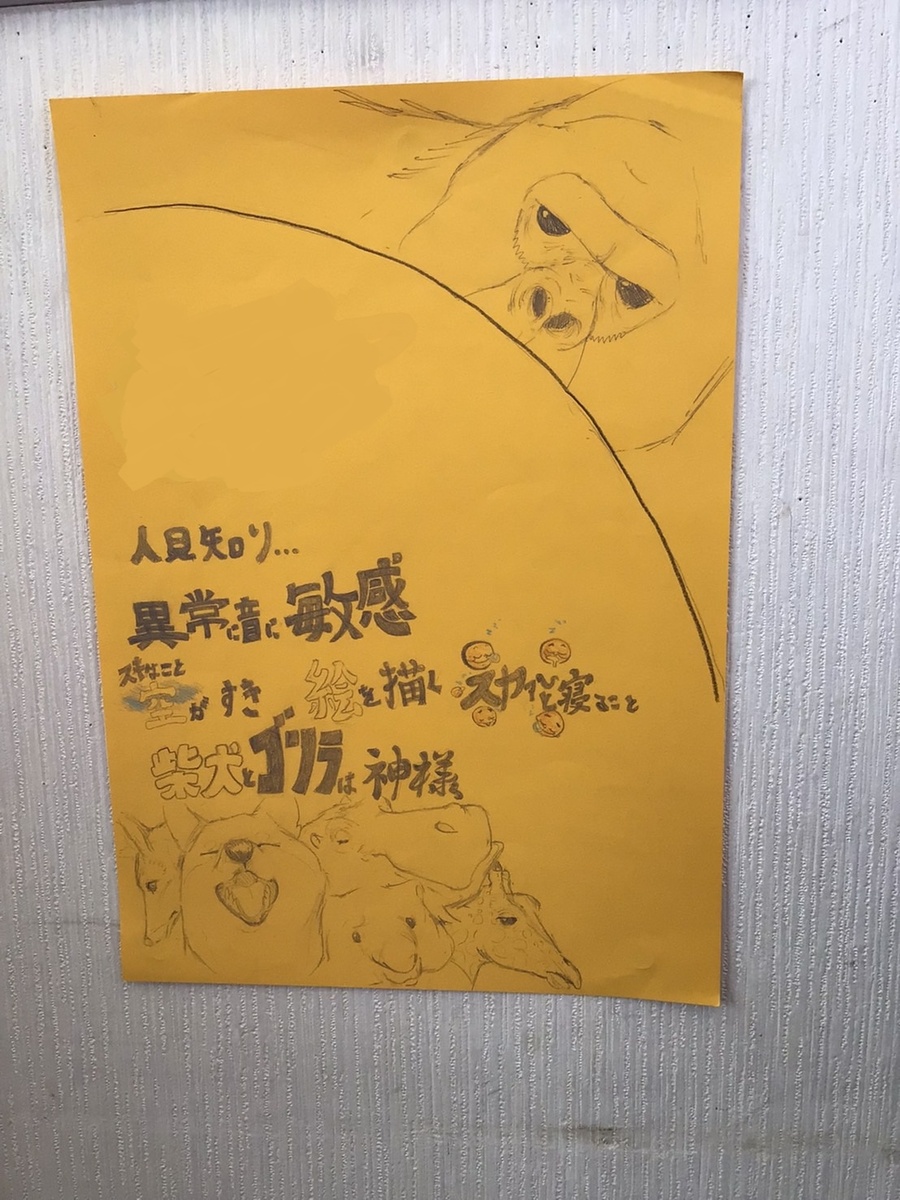 人見知り...
異常に音に敏感
スキなこと
空がすき 絵を描く スヤァ〜と寝ること
柴犬とゴリラは神様。